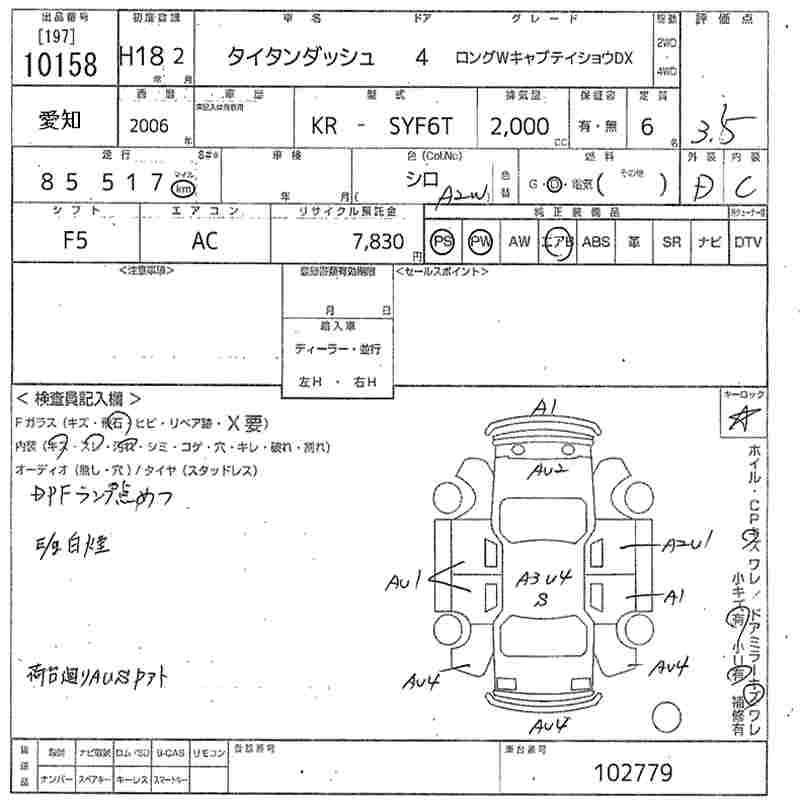 出品番号 初度登録 車名 ドア グレード 駆動 評価点
[197]
10158 H18 2 タイタンダッシュ 4 ロングWキャブテイショウDX 2WD
年 月 4WD
西暦 車歴 型式 排気量 保証書 定員
愛知 2006 年 KR - SYF6T 2,000 CC 有・無 6 名 3.5
走行 車検 色(Col.No:) 燃料 外装 内装
85 517 マイル km 年 月 シロ A2W 色替 G・D・電気( その他 ) D C
シフト エアコン リサイクル預託金 純正装備品
F5 AC 7,830 円 PS PW AW エアB ABS 革 SR ナビ DTV
<注意事項> 登録書類有効期限 <セールスポイント>
月 日
輸入車
ディーラー・並行
左H ・ 右H
<検査員記入欄> キーロック
Fガラス(キズ・飛石・ヒビ・リペア跡・X要)
内装(キズ・スレ・汚れ・シミ・コゲ・穴・キレ・破れ・割れ)
オーディオ(無し・穴)/タイヤ(スタッドレス)
DPFランプ点めつ
E/g白煙
荷台廻りAUSクァト
A1
AU2
A2U1
AU1
A3U4
S
A1
AU4
AU4
AU4
ホイル・CPキズワレ/ドアミラーキズワレ
小キズ有 小U有 補修有
後送品 取説 ナビ取説 ロム/SD B-CAS リモコン 登録番号 車台番号
ナンバー スペアキー キーレス スマートキー 102779